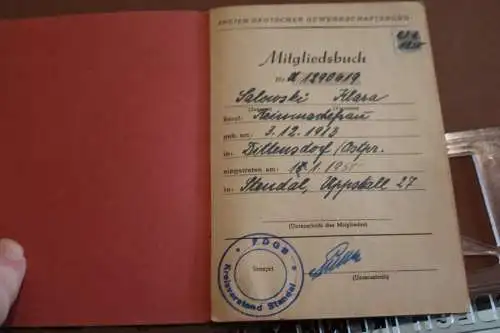 FREIER DEUTSCHER GEWERKSCHAFTSBUND
Mitgliedsbuch
Nr. A 1290619
Salewski Klara
(Zuname) (Vorname)
Beruf: Reinmachefrau
geb. am: 3.12.1913
in: Dillensdorf /Ostpr.
eingetreten am: 1.195
in: Stendal, Uppstall 27
(Unterschrift des Mitgliedes)
F D G B
Kreisvorstand Stendal
Stempel
(Unterschrift)